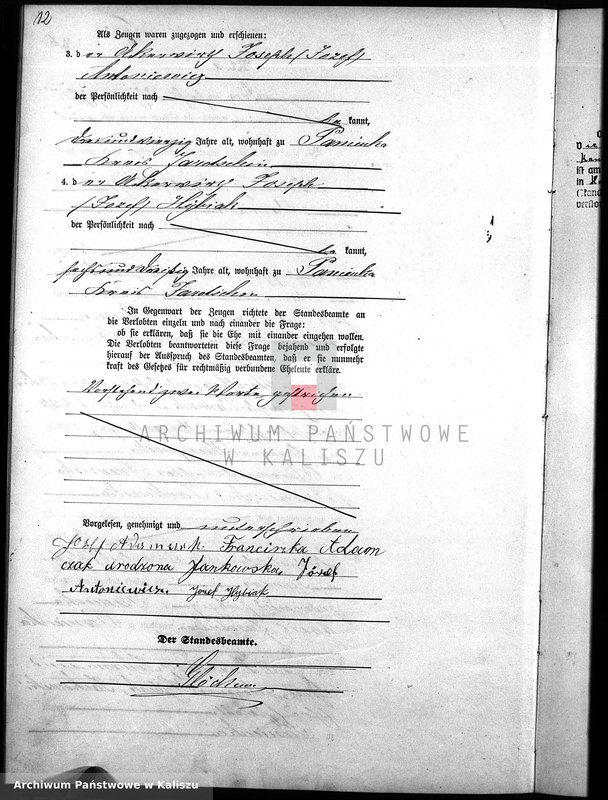 12
Als Zeugen waren zugezogen und erschienen:
3. der Ackerwirth Joseph /Jozef/
Antoniewicz
der Persönlichkeit nach
be kannt,
drei und vierzig Jahre alt, wohnhaft zu Panienka
Kreis Jarotschin
4. der Ackerwirth Joseph
/Jozef/ Hybiak
der Persönlichkeit nach
be kannt,
sechs und dreißig Jahre alt, wohnhaft zu Panienka
Kreis Jarotschin
In Gegenwart der Zeugen richtete der Standesbeamte an
die Verlobten einzeln und nach einander die Frage:
ob sie erklären, daß sie die Ehe mit einander eingehen wollen.
Die Verlobten beantworteten diese Frage bejahend und erfolgte
hierauf der Ausspruch des Standesbeamten, daß er sie nunmehr
kraft des Gesetzes für rechtmäßig verbundene Eheleute erkläre.
Vorstehend zwei Worte gestrichen
ARCHIWUM PAŃSTWOWE
W KALISZU
Vorgelesen, genehmigt und unterschrieben
Józef Franciszka Adam
czak urodzona Jankowska, Józef
Antoniewicz. Józef Hybiak
Der Standesbeamte.
ist am
in
Archiwum Państwowe w Kaliszu